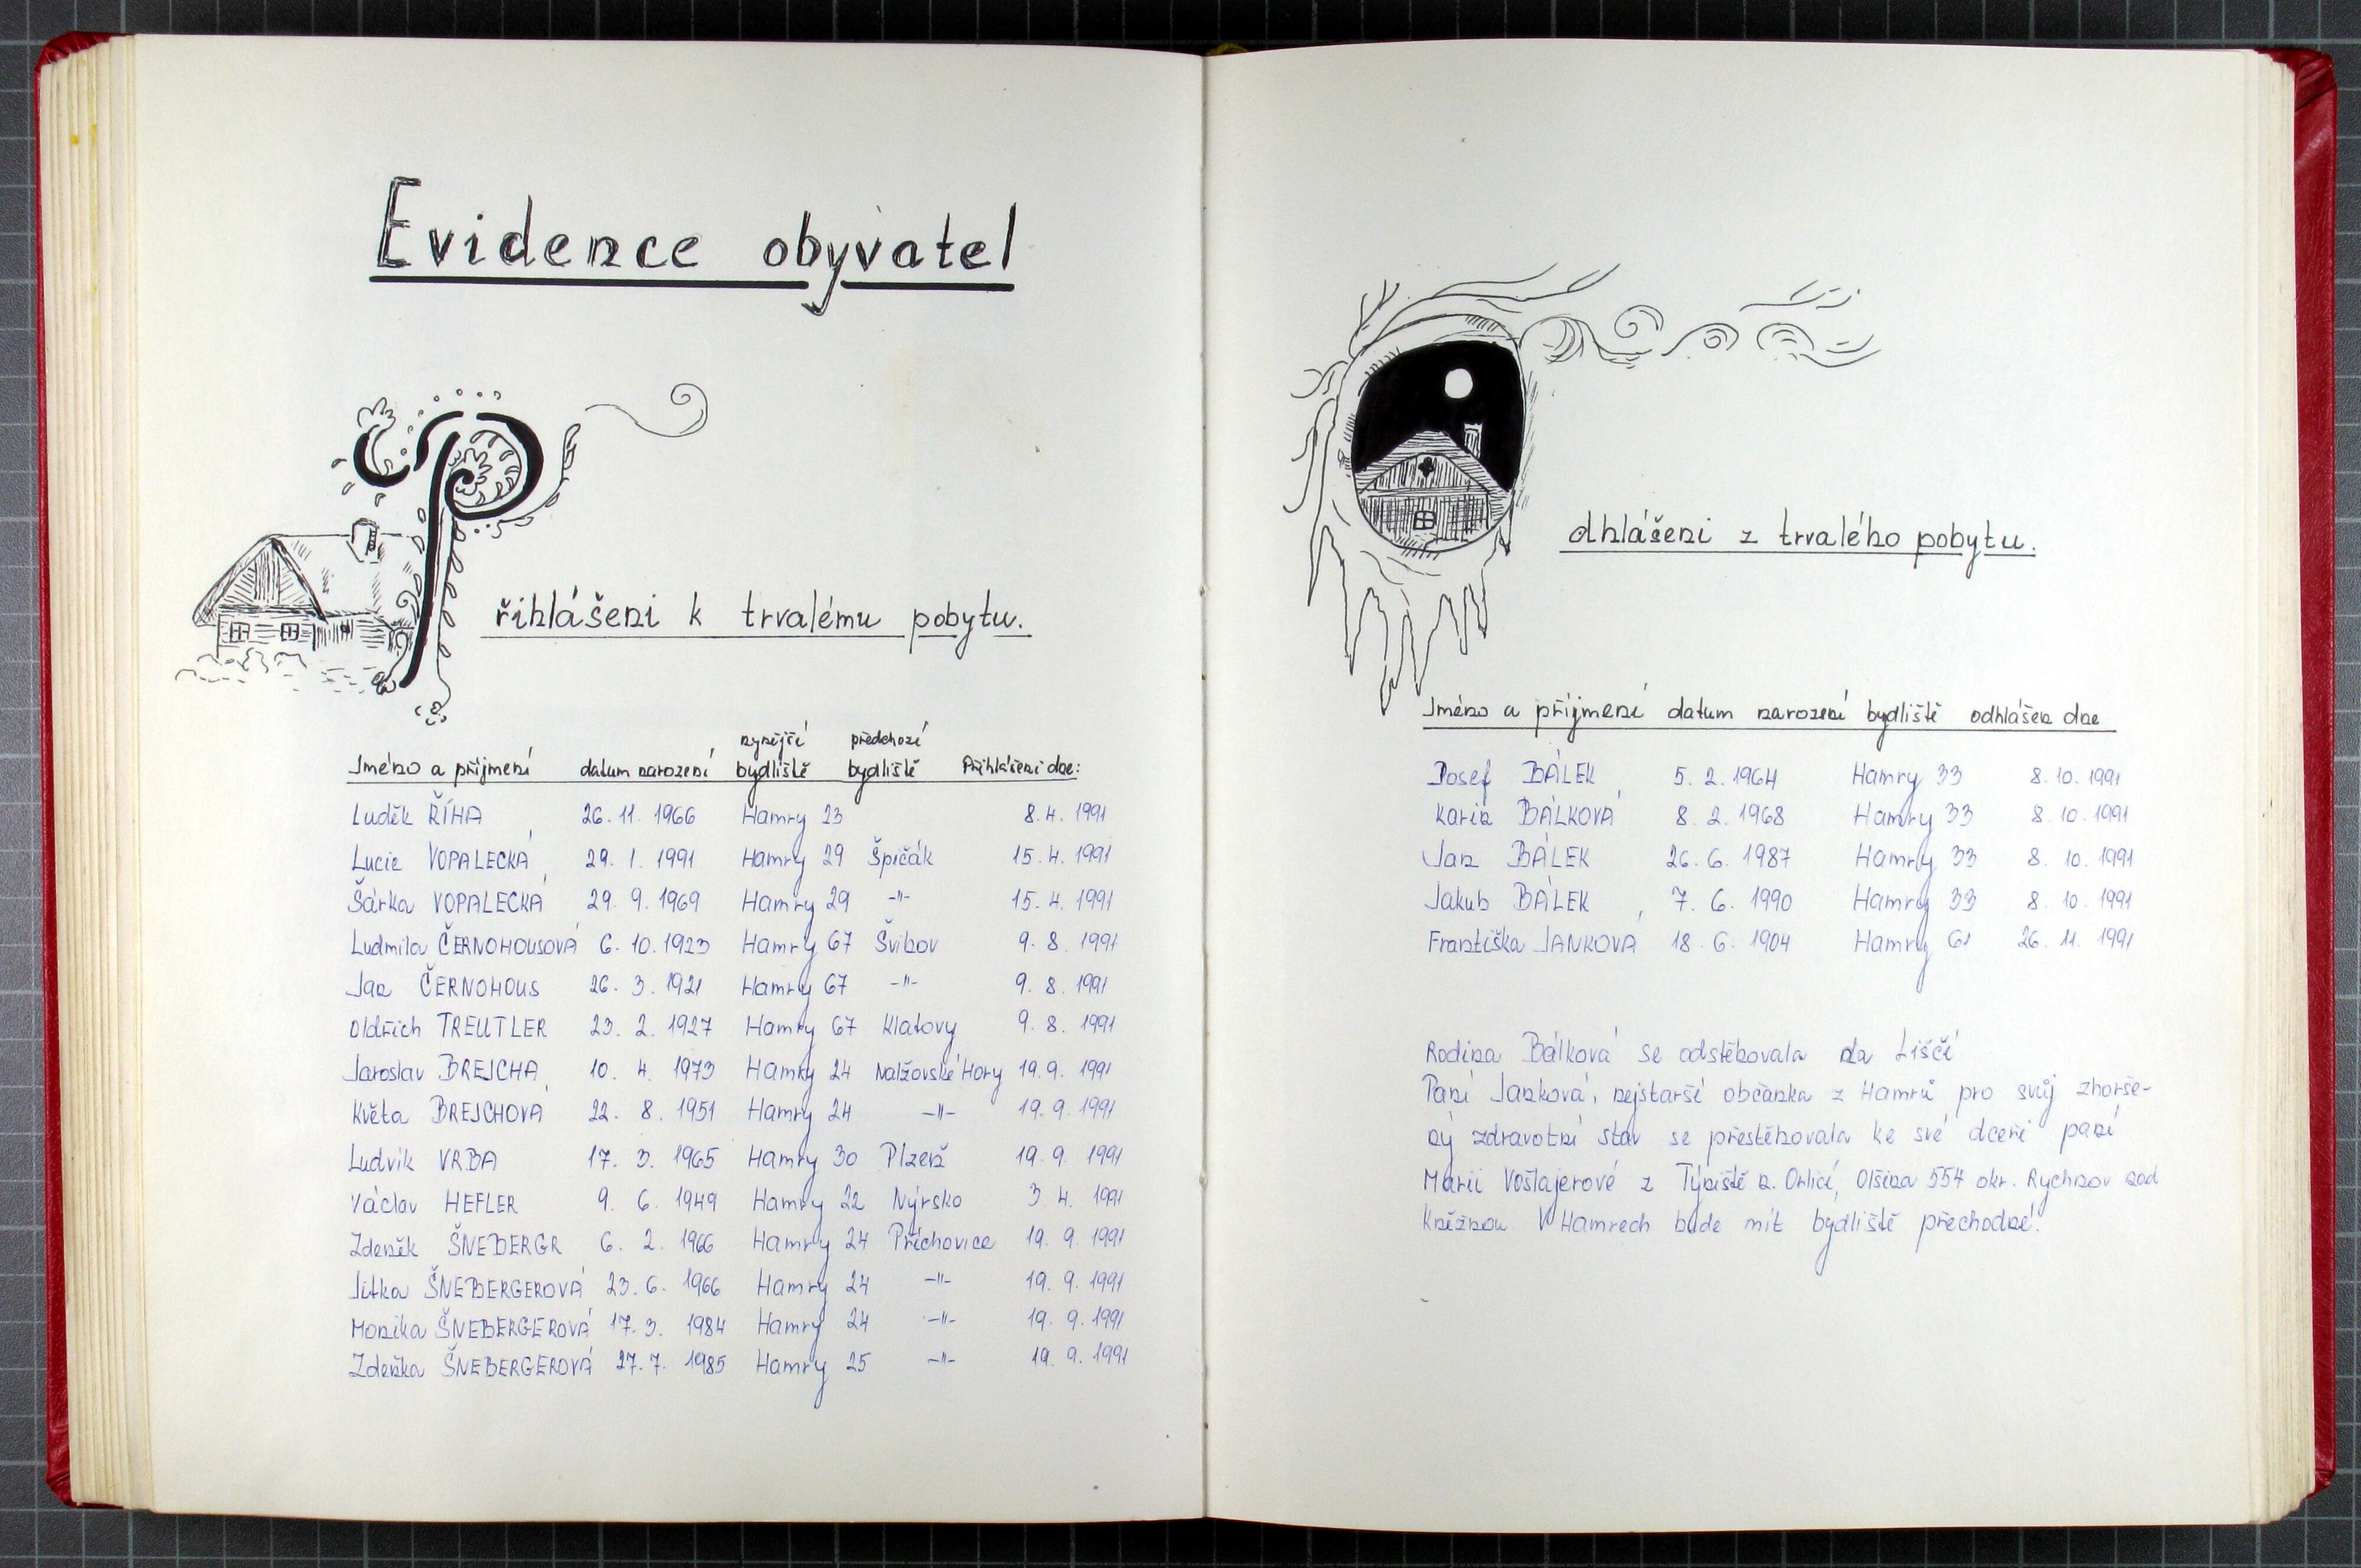 Evidence obyvatel
Přihlášeni k trvalému pobytu.
Jméno a příjmení datum narození nynější bydliště předchozí bydliště Přihlášeni dne:
Luděk ŘÍHA 26. 11. 1966 Hamry 23 8. 4. 1991
Lucie VOPALECKÁ 29. 1. 1991 Hamry 29 Špičák 15. 4. 1991
Šárka VOPALECKÁ 29. 9. 1969 Hamry 29 -"- 15. 4. 1991
Ludmila ČERNOHOUSOVÁ 6. 10. 1923 Hamry 67 Švihov 9. 8. 1991
Jan ČERNOHOUS 26. 3. 1921 Hamry 67 -"- 9. 8. 1991
Oldřich TREUTLER 23. 2. 1927 Hamry 67 Klatovy 9. 8. 1991
Jaroslav BREJCHA 10. 4. 1973 Hamry 24 Nalžovské Hory 19. 9. 1991
Květa BREJCHOVÁ 22. 8. 1951 Hamry 24 -"- 19. 9. 1991
Ludvík VRBA 17. 3. 1965 Hamry 30 Plzeň 19. 9. 1991
Václav HEFLER 9. 6. 1949 Hamry 22 Nýrsko 3. 4. 1991
Zdeněk ŠNEBERGR 6. 2. 1966 Hamry 24 Příchovice 19. 9. 1991
Jitka ŠNEBERGEROVÁ 23. 6. 1966 Hamry 24 -"- 19. 9. 1991
Monika ŠNEBERGEROVÁ 17. 3. 1984 Hamry 24 -"- 19. 9. 1991
Zdeňka ŠNEBERGEROVÁ 27. 7. 1985 Hamry 25 -"- 19. 9. 1991
Odhlášeni z trvalého pobytu.
Jméno a příjmení datum narození bydliště odhlášen dne
Josef BÁLEK 5. 2. 1964 Hamry 33 8. 10. 1991
Karin BÁLKOVÁ 8. 2. 1968 Hamry 33 8. 10. 1991
Jan BÁLEK 26. 6. 1987 Hamry 33 8. 10. 1991
Jakub BÁLEK 7. 6. 1990 Hamry 33 8. 10. 1991
Františka JANKOVÁ 18. 6. 1904 Hamry 61 26. 11. 1991
Rodina Bálková se odstěhovala na Liščí
Paní Janková, nejstarší občanka z Hamrů pro svůj zhorše-
ný zdravotní stav se přestěhovala ke své dceři paní
Marii Voštajerové z Týniště n. Orlicí, Olšina 554 okr. Rychnov nad
Kněžnou V Hamrech bude mít bydliště přechodné.